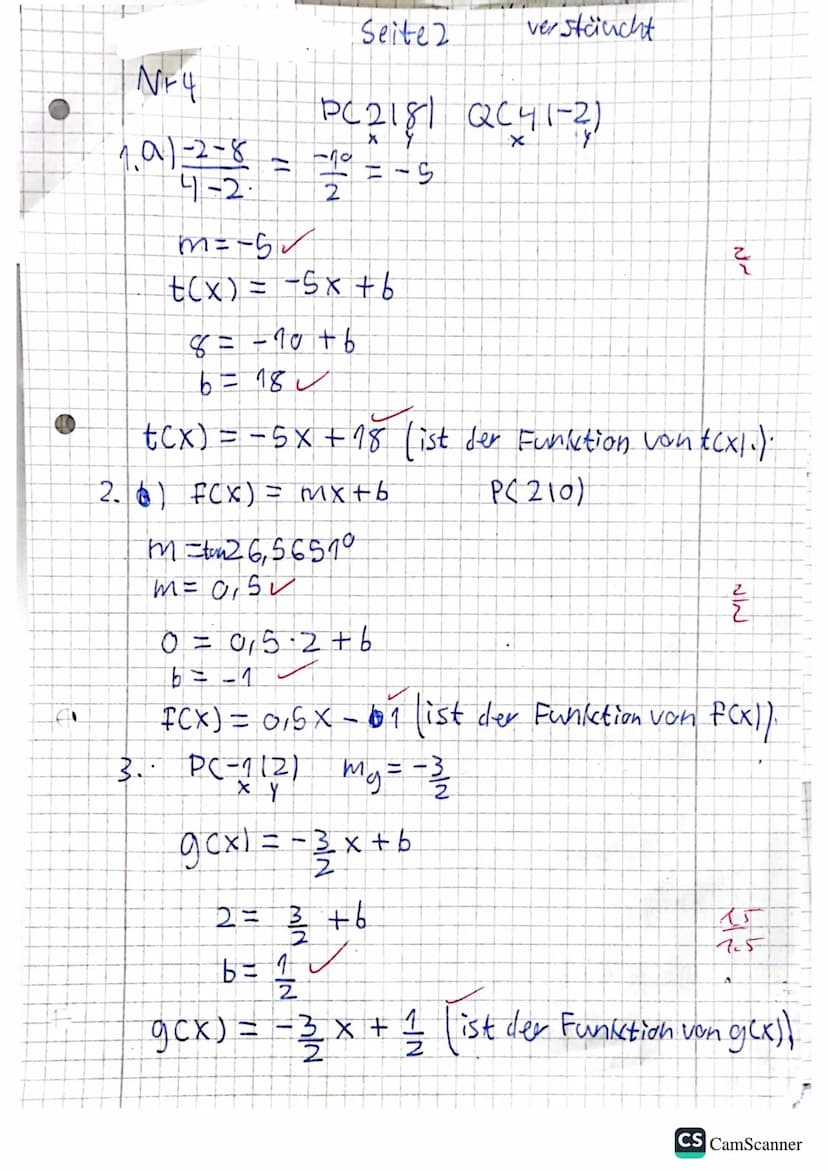 Seite 2 verstäucht
Nr 4
P(2|8) Q(4|-2)
x y x y
1. a) -2-8/4-2 = -10/2 = -5
m = -5 ✓
2/2
t(x) = -5x + b
8 = -10 + b
b = 18 ✓
t(x) = -5x + 18 ✓ (ist der Funktion von t(x).)
2. b) f(x) = mx + b P(2|0)
m = tan 26,5651°
m = 0,5 ✓
2/2
0 = 0,5 · 2 + b
b = -1 ✓
f(x) = 0,5x - 1 ✓ (ist der Funktion von f(x)).
3. P(-1|2) mg = -3/2
x y
g(x) = -3/2 x + b
2 = 3/2 + b
1.5/1.5
b = 1/2 ✓
g(x) = -3/2 x + 1/2 ✓ (ist der Funktion von g(x))
CS CamScanner